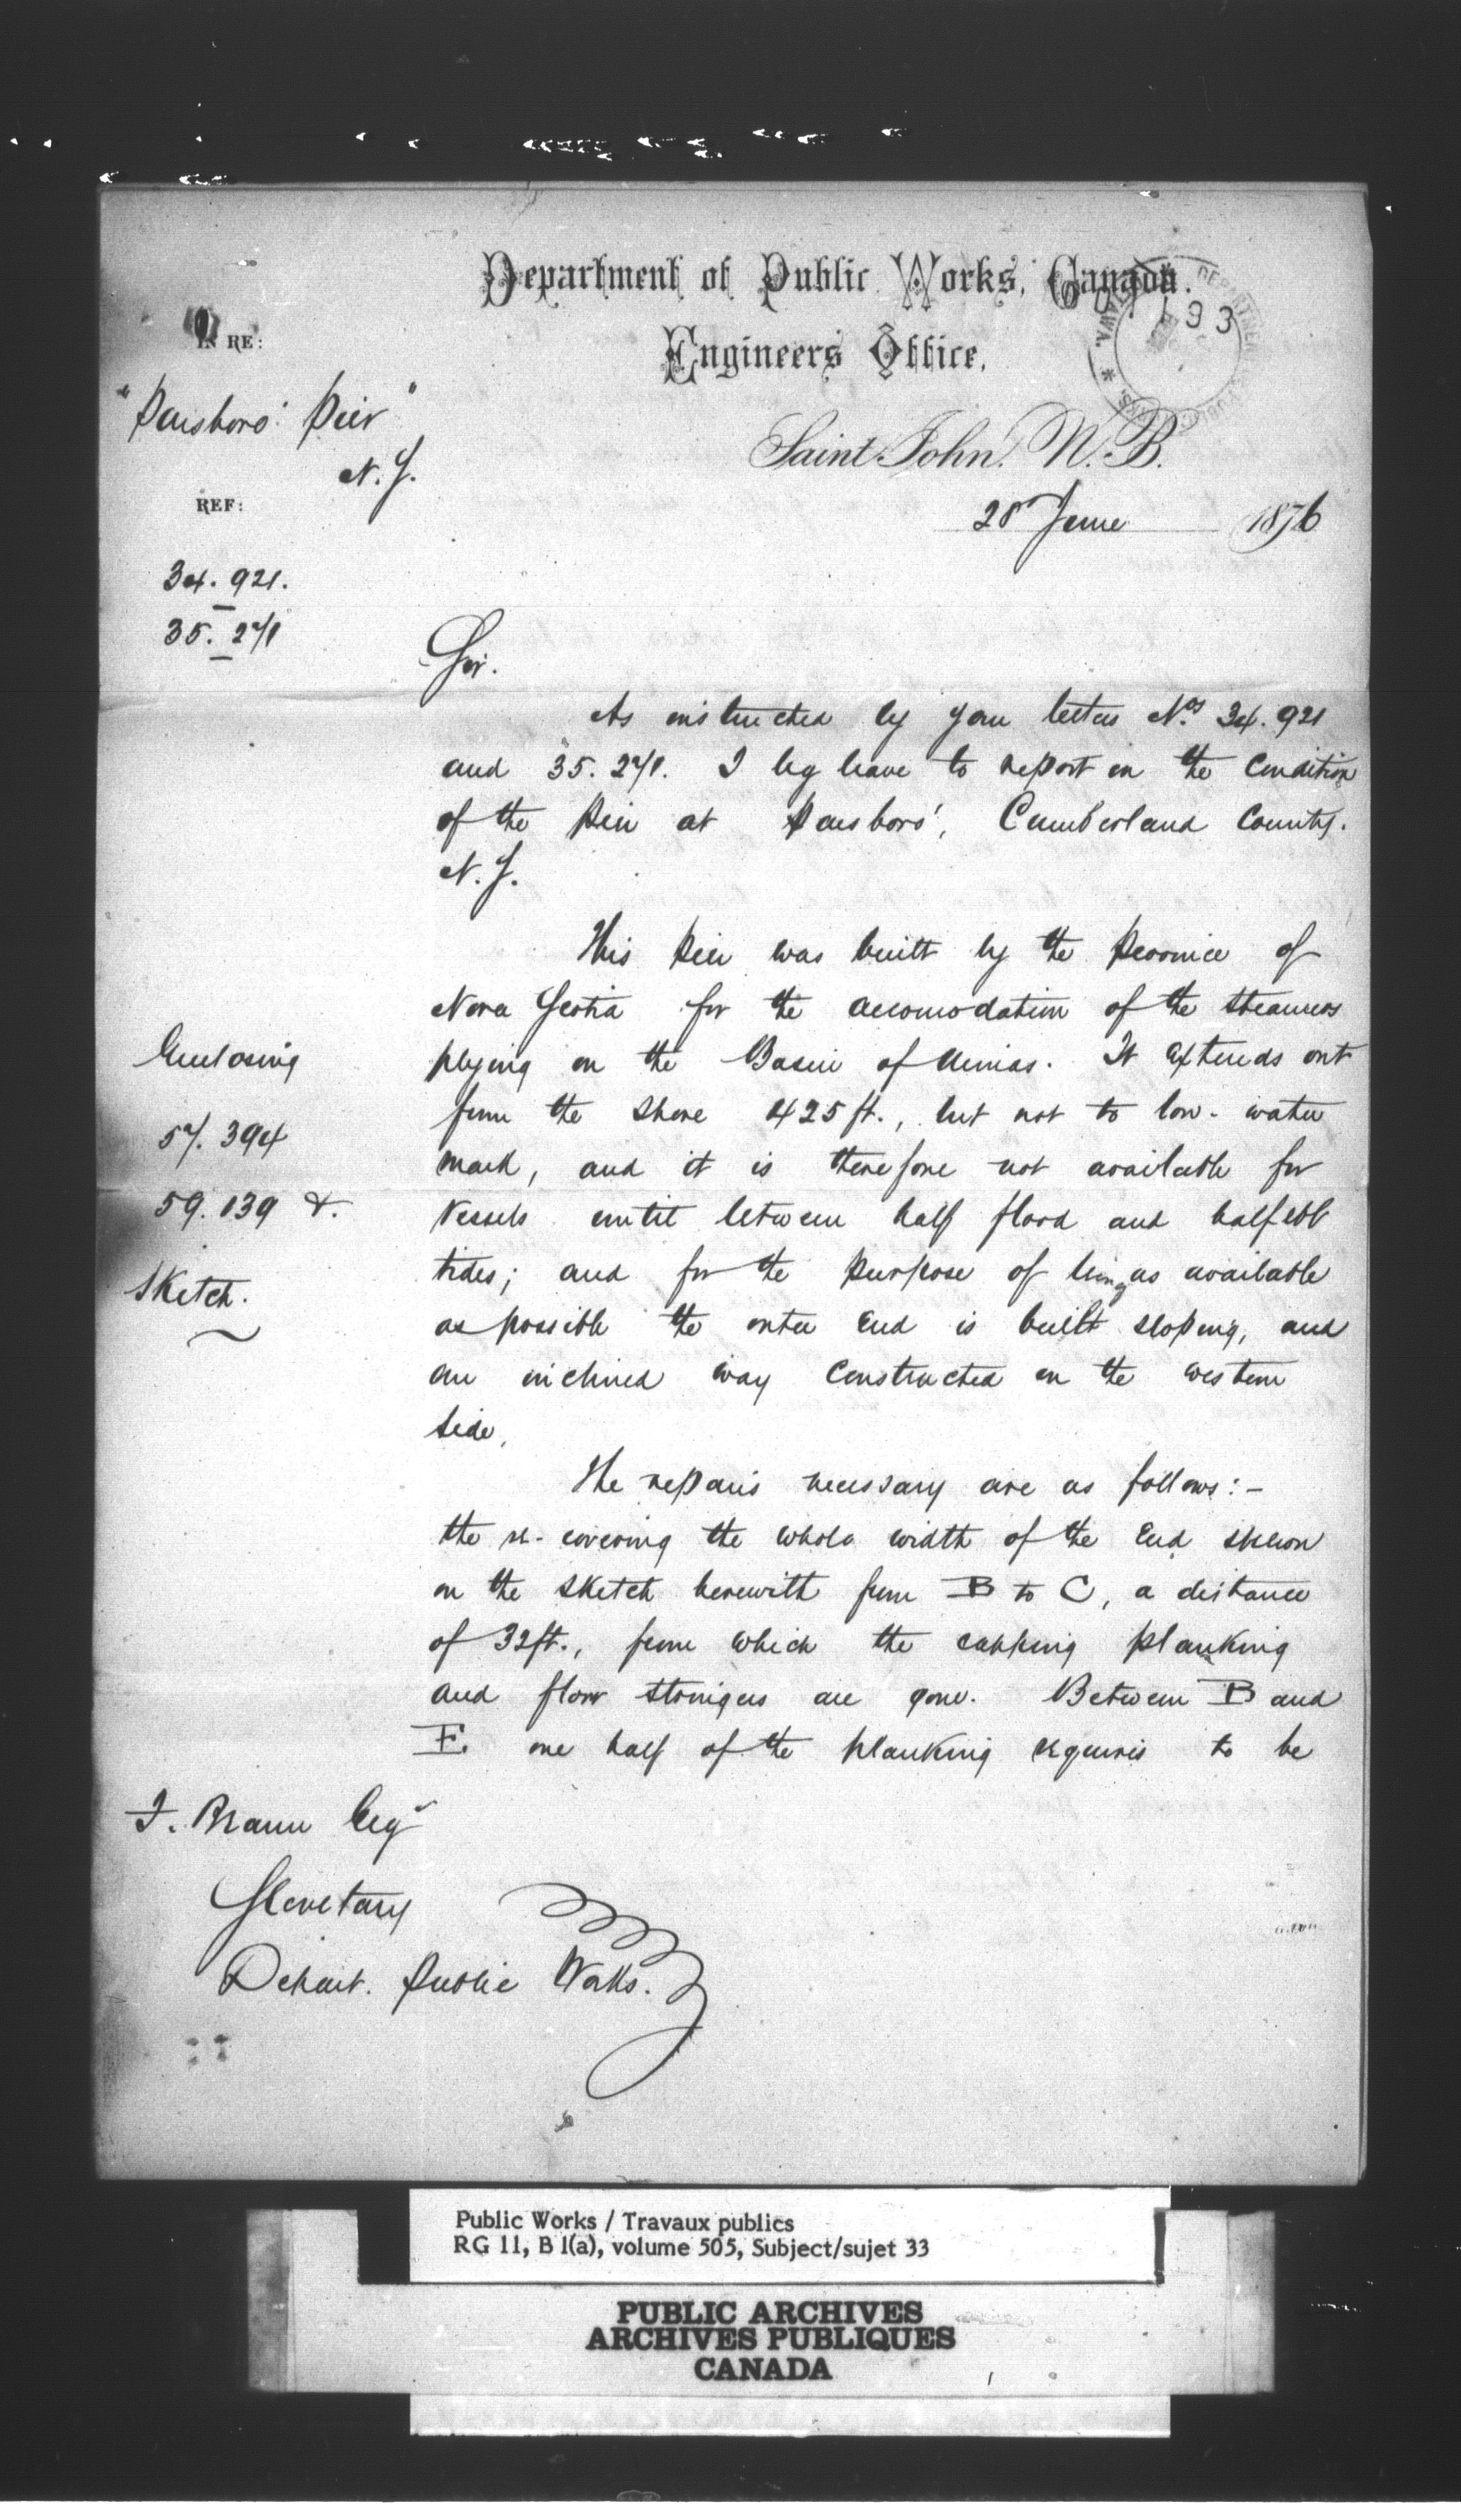 Department of Public Works, Canada.
Engineers Office,
Saint John. N. B.
28 June 1876
IN RE:
"Parsboro' Pier"
N. S.
REF:
34. 921.
35. 271
Sir.
As instructed by your letters Nos 34. 921
and 35. 271. I beg leave to report on the Condition
of the Pier at Parsboro', Cumberland County.
N. S.
This Pier was built by the Province of
Nova Scotia for the accomodation of the steamers
plying on the Basin of Minas. It extends out
from the shore 425 ft., but not to low-water
mark, and it is therefore not available for
vessels until between half flood and half ebb
tides; and for the purpose of being as available
as possible the outer End is built sloping, and
an inclined way constructed on the western
side.
The repairs necessary are as follows:-
the re-covering the whole width of the End shewn
on the sketch herewith from B to C, a distance
of 32 ft., from which the capping planking
and floor stringers are gone. Between B and
E. one half of the planking requires to be
Enclosing
57. 394
59. 139 &.
Sketch.
F. Braun Esqr
Secretary
Depart. Public Works.
Public Works / Travaux publics
RG 11, B 1(a), volume 505, Subject/sujet 33
PUBLIC ARCHIVES
ARCHIVES PUBLIQUES
CANADA